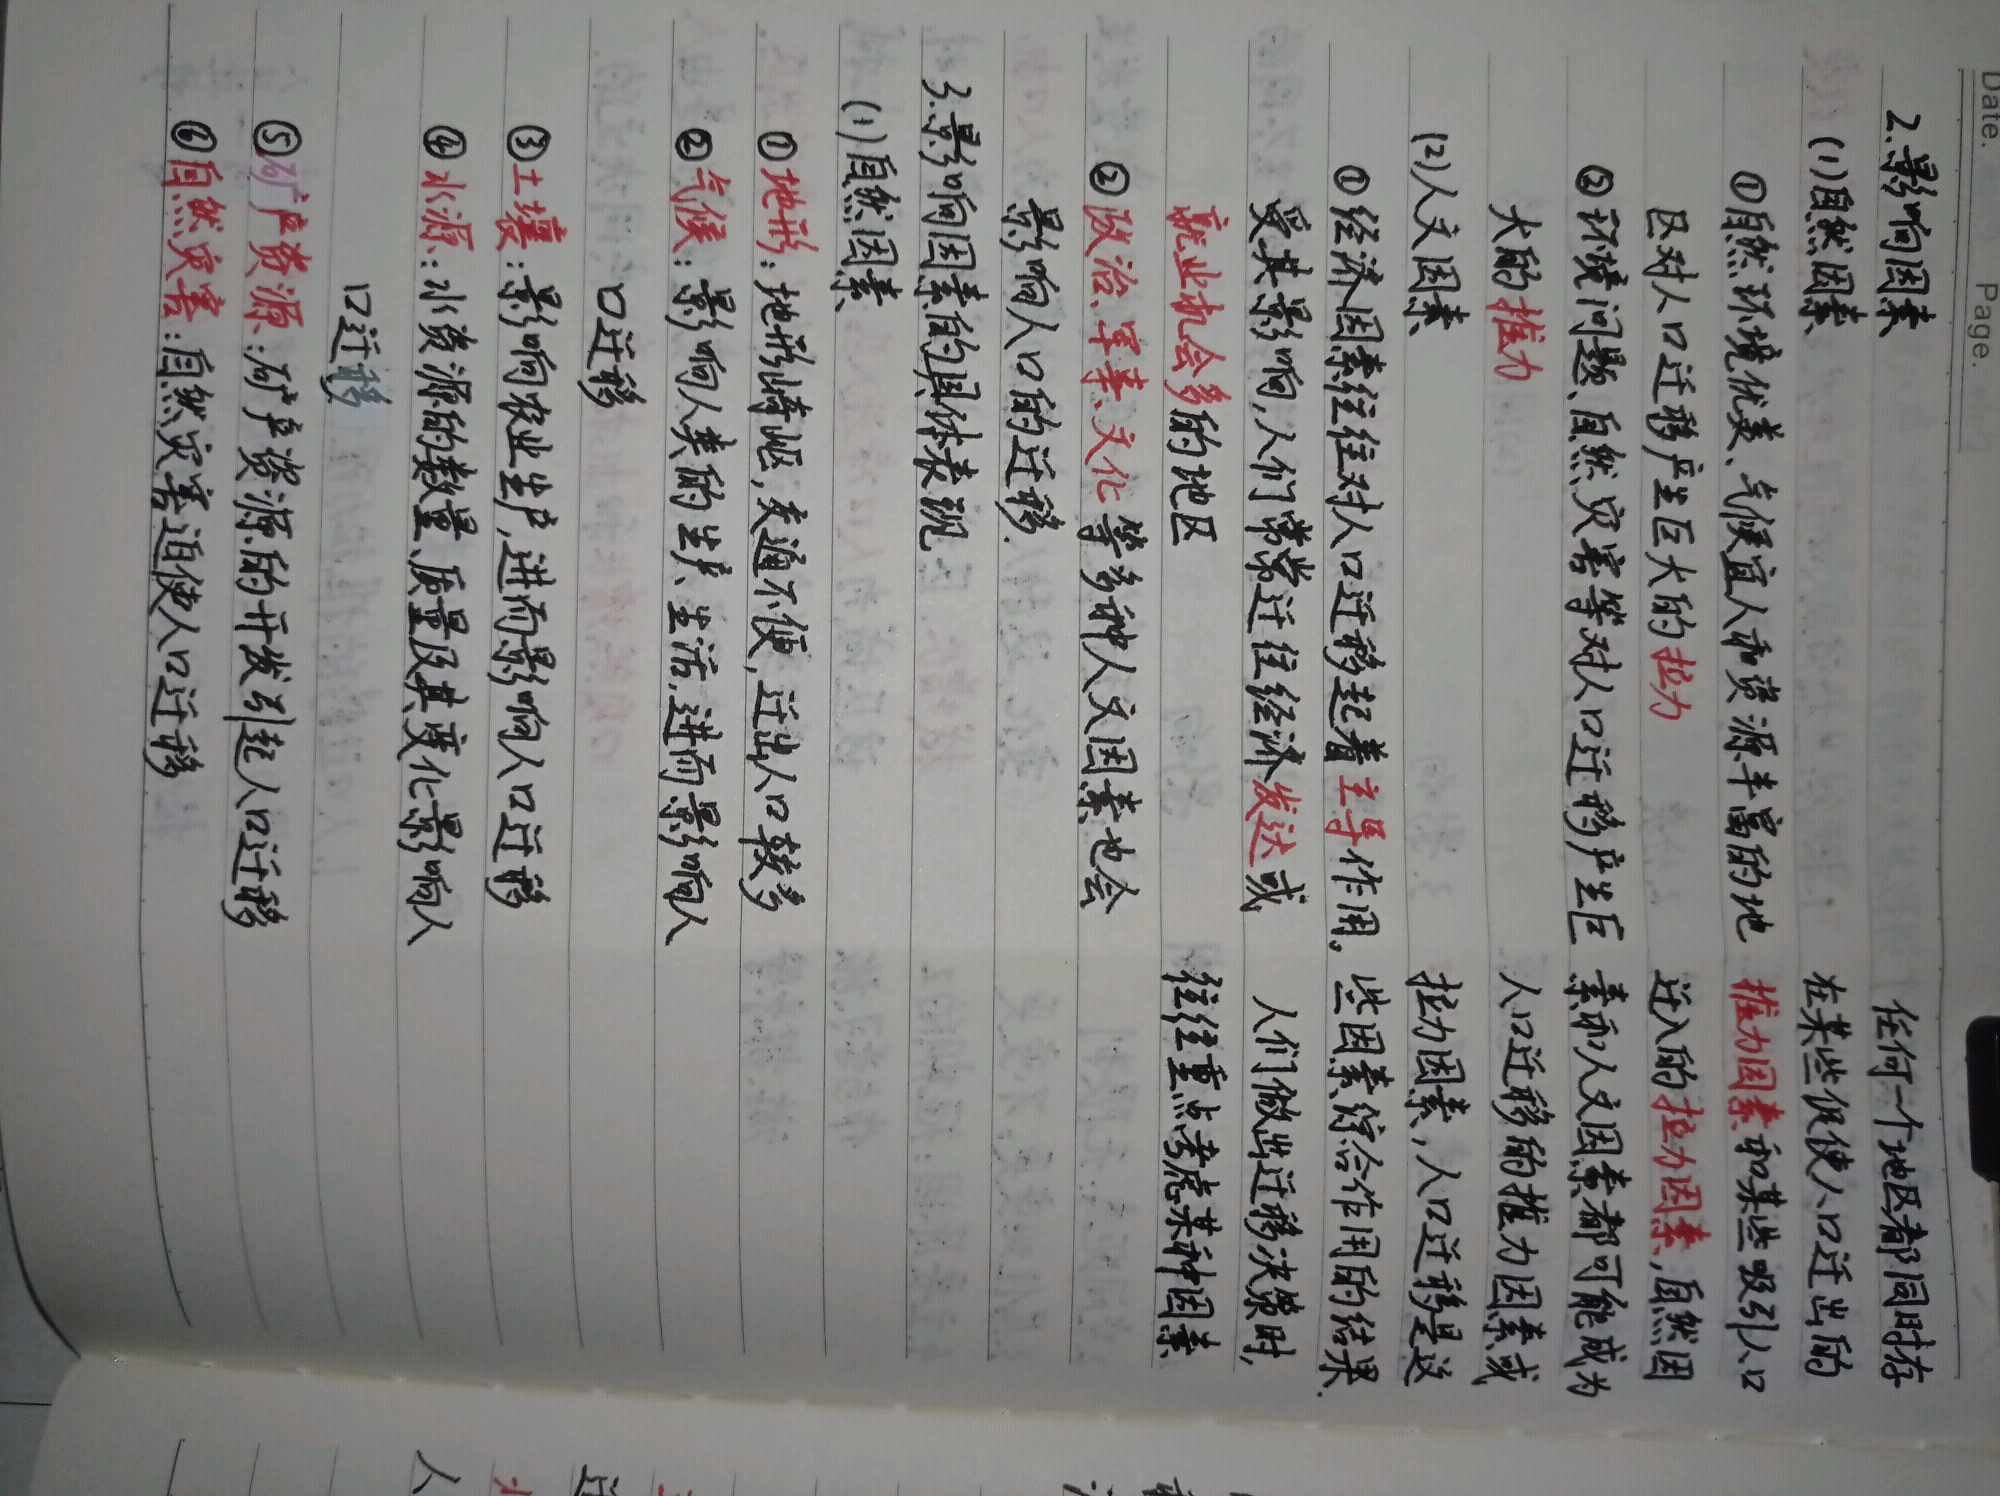 Date.
Page.
2.影响因素
(1)自然因素
①自然环境优美、气候宜人和资源丰富的地
区对人口迁移产生巨大的拉力
②环境问题、自然灾害等对人口迁移产生巨
大的推力
(2)人文因素
①经济因素往往对人口迁移起着主导作用。
受其影响,人们常常迁往经济发达或
就业机会多的地区
②政治、军事、文化等多种人文因素也会
影响人口的迁移.
3.影响因素的具体表现
(1)自然因素
①地形:地形崎岖,交通不便,迁出人口较多
②气候:影响人类的生产、生活,进而影响人
口迁移
③土壤:影响农业生产,进而影响人口迁移
④水源:水资源的数量、质量及其变化影响人
口迁移
⑤矿产资源:矿产资源的开发引起人口迁移
⑥自然灾害:自然灾害迫使人口迁移
任何一个地区都同时存
在某些促使人口迁出的
推力因素和某些吸引人口
迁入的拉力因素,自然因
素和人文因素都可能成为
人口迁移的推力因素或
拉力因素,人口迁移是这
些因素综合作用的结果.
人们做出迁移决策时,
往往重点考虑某种因素
人